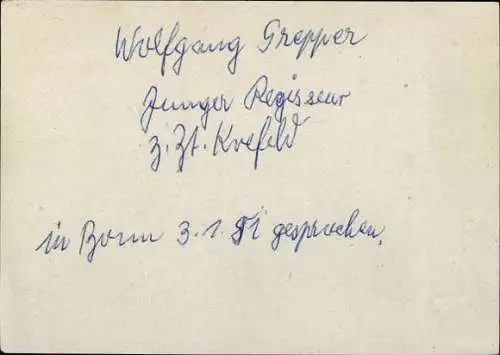 Wolfgang Trepper
Junger Regisseur
z. Zt. Krefeld
in Bonn 3. 1. 51 gesprochen.